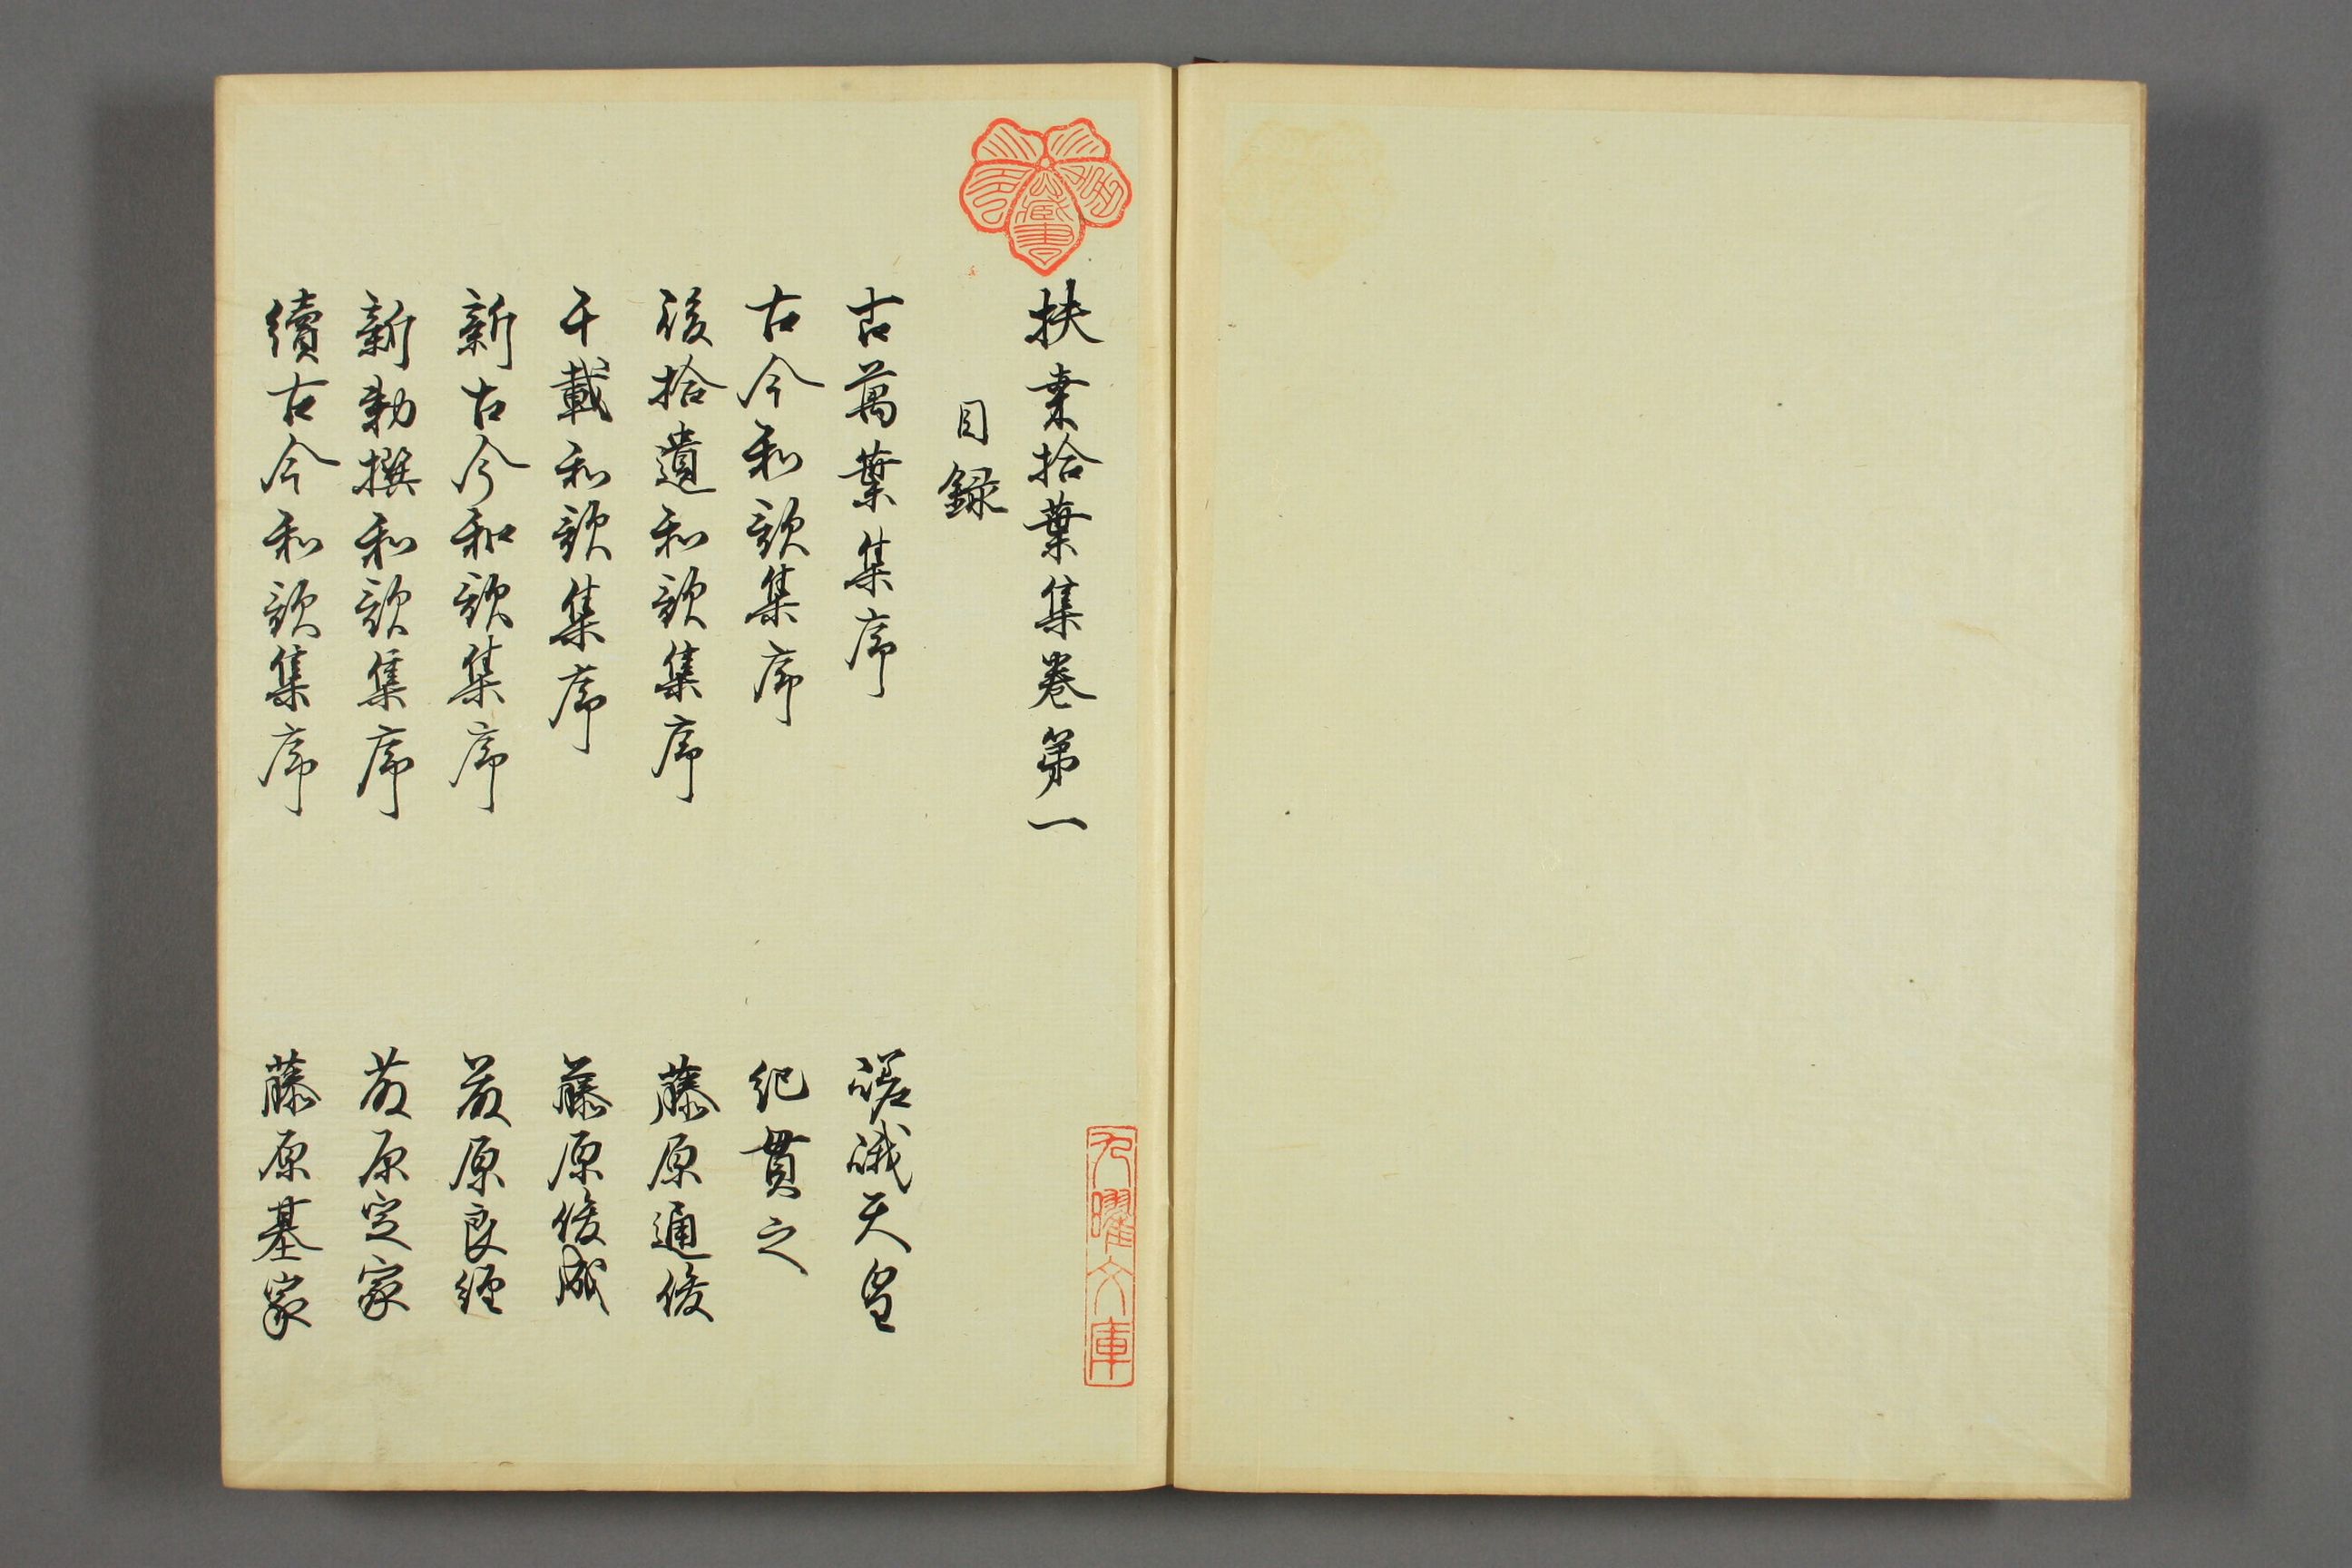 扶桒拾葉集巻第一
目録
古萬葉集序 嵯峨天皇
古今和歌集序 紀貫之
後拾遺和歌集序 藤原通俊
千載和歌集序 藤原俊成
新古今和歌集序 藤原良経
新勅撰和歌集序 藤原定家
續古今和歌集序 藤原基家
九曜文庫